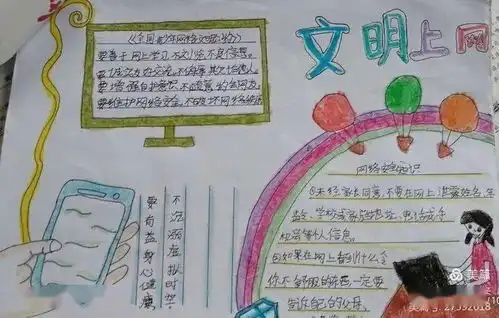 文明上网
《全国青少年网络文明公约》
要善于网上学习,不浏览不良信息。
要诚实友好交流,不侮辱欺诈他人。
要增强自护意识,不随意约会网友。
要维护网络安全,不破坏网络秩序
要有益身心健康
不沉溺虚拟时空
网络安全知识
①未经家长同意,不要在网上泄露姓名
学校或家庭地址,电话或
等个人信息。
如果在网上看到什么
你不舒服的东西一定要
告诉自己的父母。
美篇
美篇号:27392018